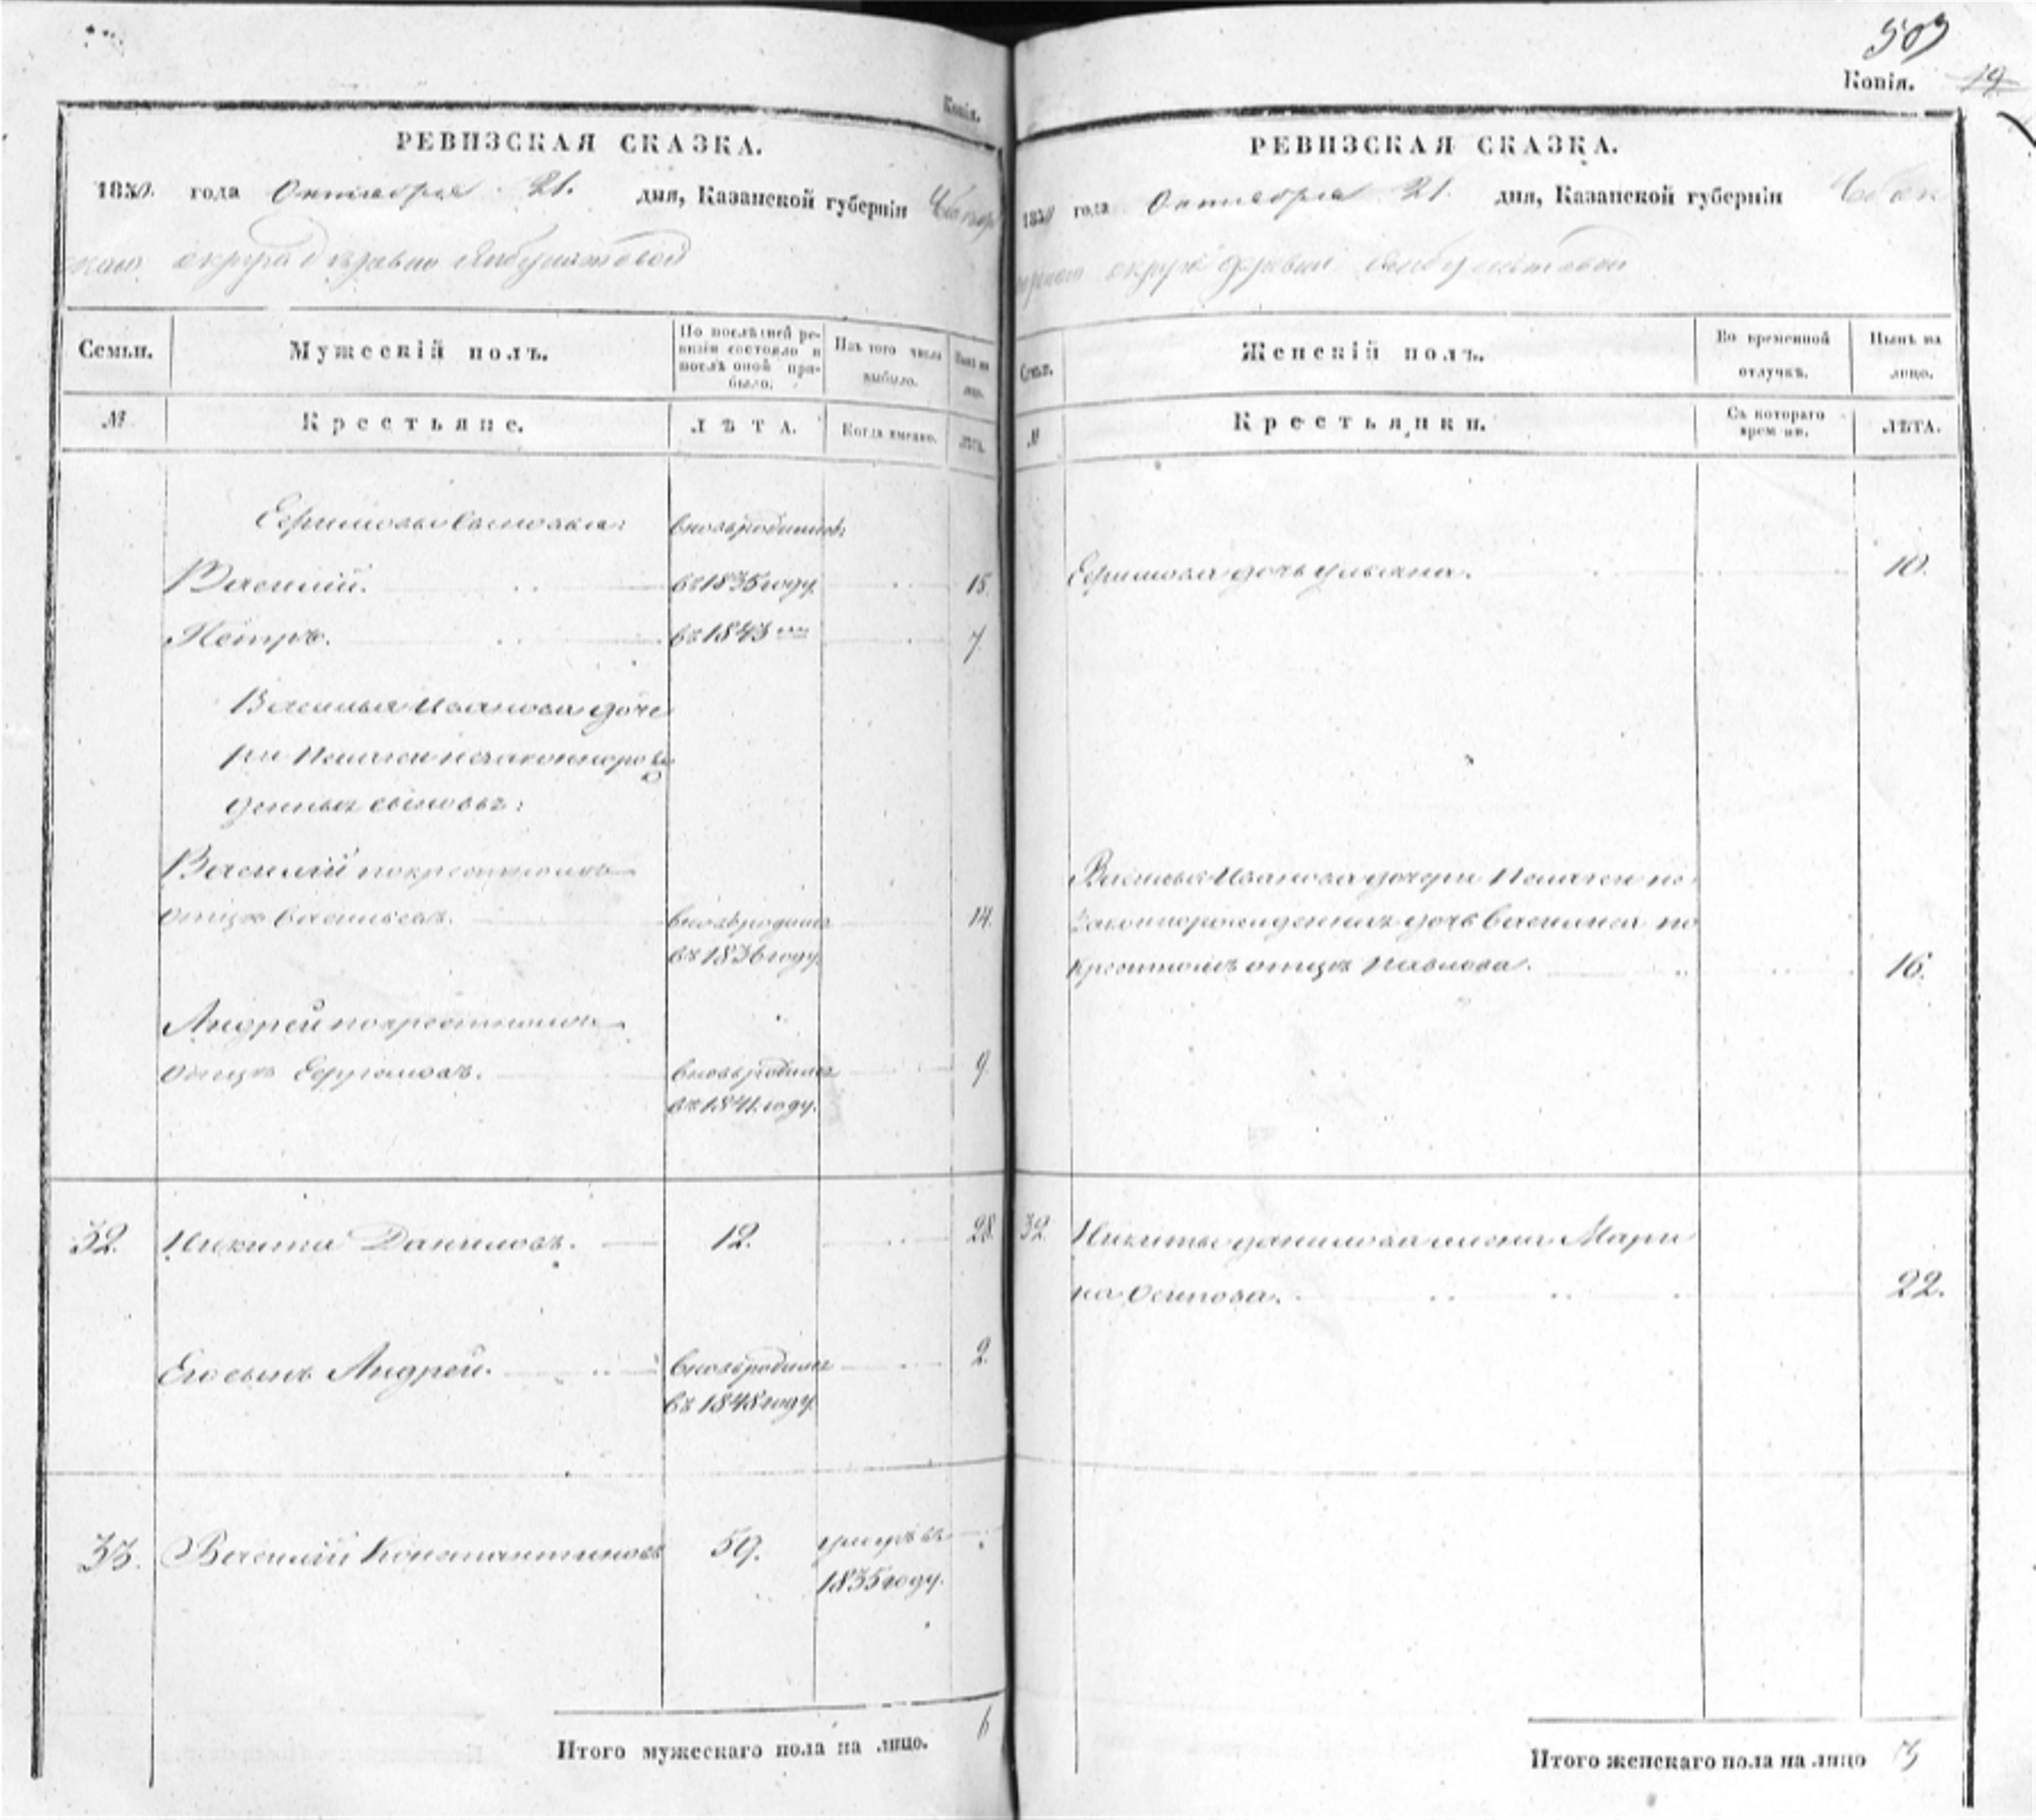 509
Копія. 19
Копія.
РЕВИЗСКАЯ СКАЗКА.
1850 года Октября 21. дня, Казанской губерніи Чебоксар
скаго округа деревни
Семьи.
Мужескій полъ.
По послѣдней ре-
визіи состояло и
послѣ оной при-
было.
Изъ того числа
выбыло.
Нынѣ на
лицо.
№
Крестьяне.
ЛѢТА.
Когда именно.
ЛѢТА.
Ефимовы сыновья: вновьродились
Василій. въ 1835 году 15.
Петръ. въ 1843 7.
Василья Иванова доче
ри Пелагеи незаконнорож
денныхъ сыновья:
Василій по крестномъ
отцѣ Васильевъ. вновьродился 14.
въ 1836 году.
Андрей по крестномъ
отцѣ Ефимовъ. вновьродился 9
въ 1841 году.
32. Никита Даниловъ. 12. 28.
Его сынъ Андрей. вновьродился 2.
въ 1848 году.
33. Василій Константиновъ 59. умеръ въ
1835 году.
Итого мужескаго пола на лицо. 6
РЕВИЗСКАЯ СКАЗКА.
1850 года Октября 21. дня, Казанской губерніи Чебок
сарскаго округа деревни
Семьи.
Женскій полъ.
Во временной
отлучкѣ.
Нынѣ на
лицо.
№
Крестьянки.
Съ котораго
времени.
ЛѢТА.
Ефимова дочь Ульяна. 10.
Василья Иванова дочери Пелагеи не
законнорожденная дочь Василиса по
крестномъ отцѣ Павлова. 16.
32. Никиты Данилова жена Мари
на Осипова. 22.
Итого женскаго пола на лицо 3